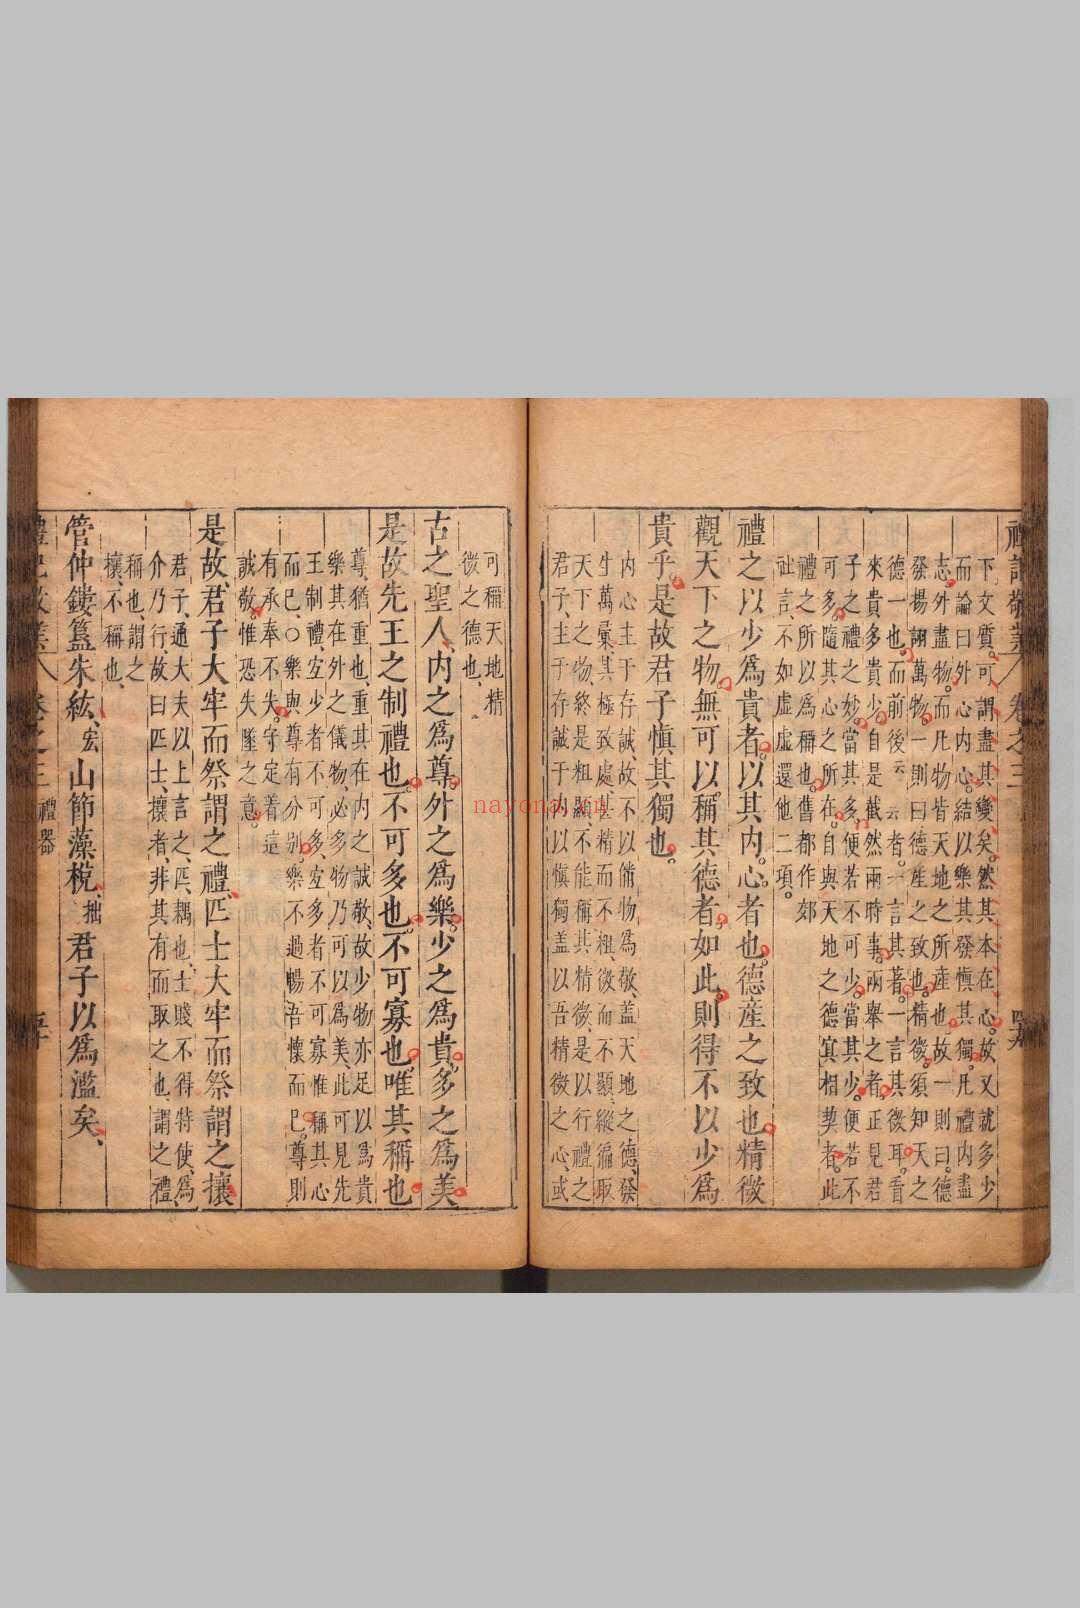 禮記敬業 卷之三 四九
下文質可謂盡其變矣然其本在心故又就多少
而論曰外心內心結以樂其發慎其獨凡禮內盡
志外盡物而凡物皆天地之所産也故一則曰德
發揚詡萬物一則曰德産之致也精微須知天之
德一也而前後云云者一言其著一言其微耳看
來貴多貴少自是截然兩時事兩舉之者正見君
子之禮之妙當其多便若不可少當其少便若不
可多隨其心之所在自與天地之德宾相契者此
禮之所以爲稱也舊都作郊
祉言不如虛虛還他二項
禮之以少爲貴者以其內心者也德産之致也精微
觀天下之物無可以稱其德者如此則得不以少爲
貴乎是故君子慎其獨也
內心主于存誠故不以備物爲敬蓋天地之德發
生萬彙其極致處甚精而不粗微而不顯縱徧取
天下之物終是粗顯不能稱其精微是以行禮之
君子主于存誠于內以慎獨蓋以吾精微之心或
可稱天地精
微之德也
古之聖人內之爲尊外之爲樂少之爲貴多之爲美
是故先王之制禮也不可多也不可寡也唯其稱也
尊猶重也重其在內之誠敬故少物亦足以爲貴
樂其在外之儀物必多物乃可以爲美此可見先
王制禮宜少者不可多宜多者不可寡惟稱其心
而已〇樂與尊有分别樂不過暢吾懷而已尊則
有承奉不失守定着這
誠敬惟恐失墜之意
是故君子大牢而祭謂之禮匹士大牢而祭謂之攘
君子通大夫以上言之匹耦也士賤不得特使爲
介乃行故曰匹士攘者非其有而取之也謂之禮
稱也謂之
攘不稱也
管仲鏤簋朱紘宏山節藻梲拙君子以爲濫矣
禮記敬業 卷之三 禮器 五十
nayona.cn